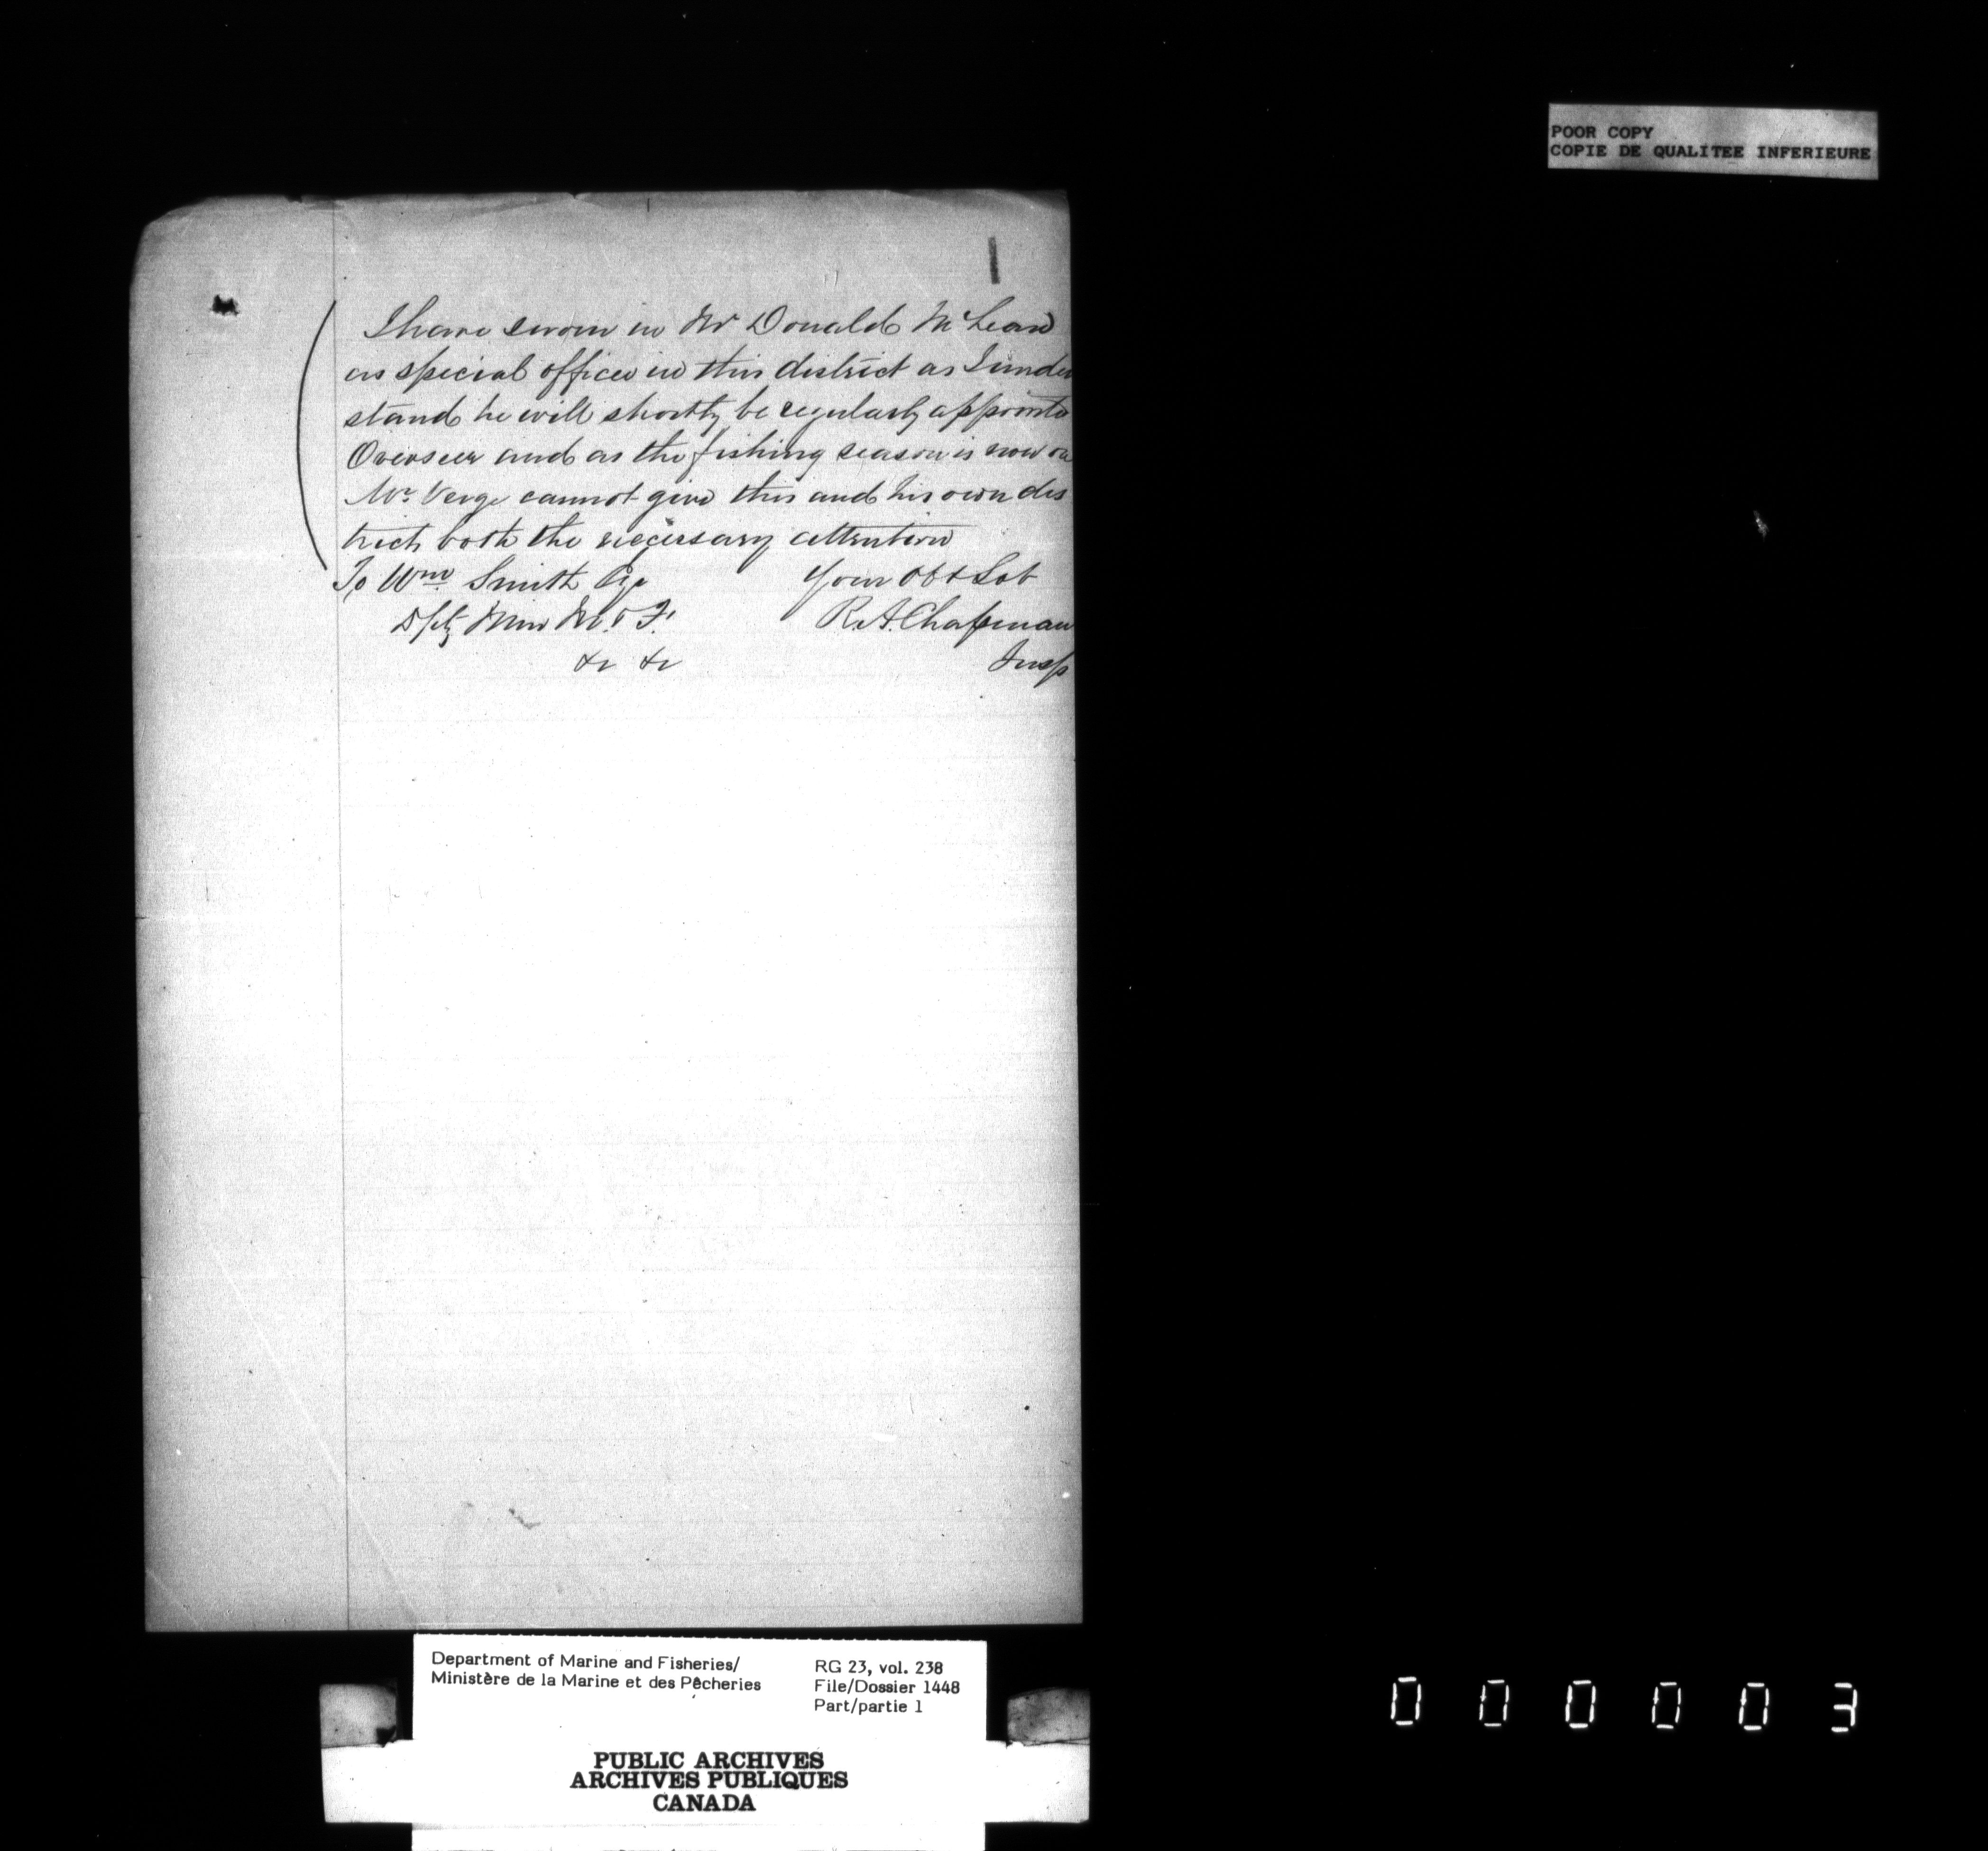 POOR COPY
COPIE DE QUALITEE INFERIEURE
I have sworn in Mr Donald McLean
as special officer in this district as I under
stand he will shortly be regularly appointe
Overseer and as the fishing season is now on
Mr. Verge cannot give this and his own dis
trict both the necessary attention
To Wm. Smith Esq Your Obt Svt
Dpty Min M. & F. R. A. Chapman
&c &c Insp
Department of Marine and Fisheries/ RG 23, vol. 238
Ministère de la Marine et des Pêcheries File/Dossier 1448
Part/partie 1
PUBLIC ARCHIVES
ARCHIVES PUBLIQUES
CANADA
000003